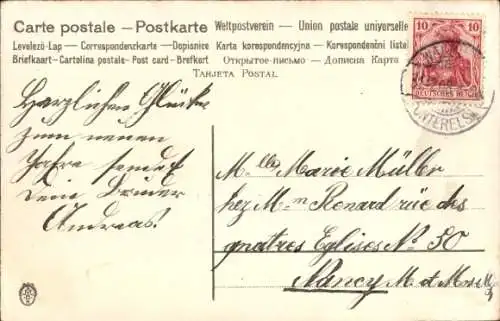 Carte postale – Postkarte
Weltpostverein – Union postale universelle
Levelező-Lap – Correspondenzkarte – Dopisnice
Karta korespondencyjna – Korespondenčni listek
Briefkaart – Cartolina postale – Post card – Brefkort
Открытое письмо – Дописна Карта
Tarjeta Postal
10 10
DEUTSCHES REICH
UNTERELSASS
Herzlichen Glück
zum neuen
Jahre sendet
Dein Bruder
Andreas.
M.lle Marie Müller
hez M.n Renard rüe des
quatres Eglises No 50
Nancy M. et Mos.